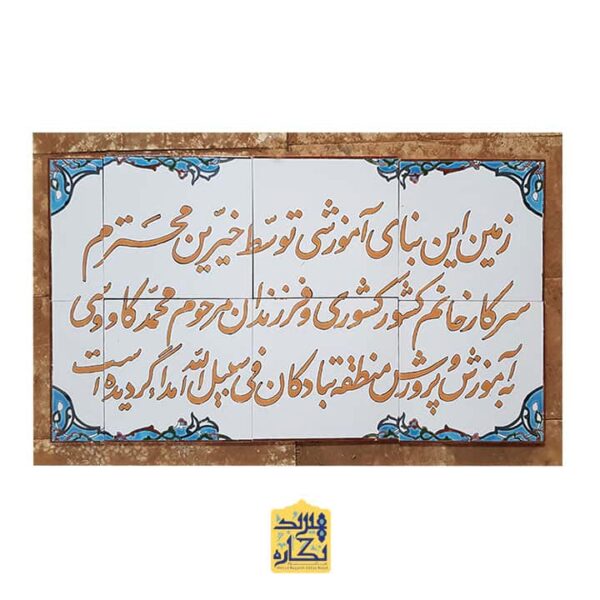 زمین این بنای آموزشی توسط خیّرین محترم
سرکار خانم کشور کشوری و فرزندان مرحوم محمّد کاووسی
به آموزش و پرورش منطقه تبادکان فی سبیل الله اهداء گردیده است
هیربد
نگاره